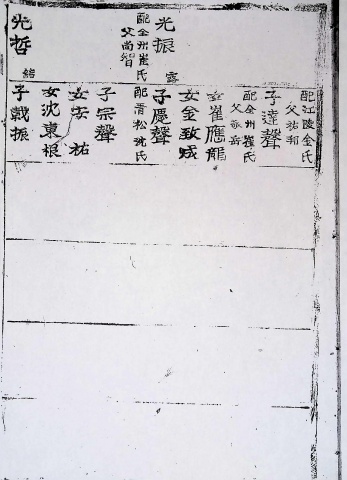 光振
配全州崔氏
父尚智
光哲
露
緒
配江陵金氏
父祐邦
子達聲
配全州崔氏
女崔應龍
女金致成
子慶聲
配青松沈氏
子宗聲
女李祐
女沈東根
子戟振